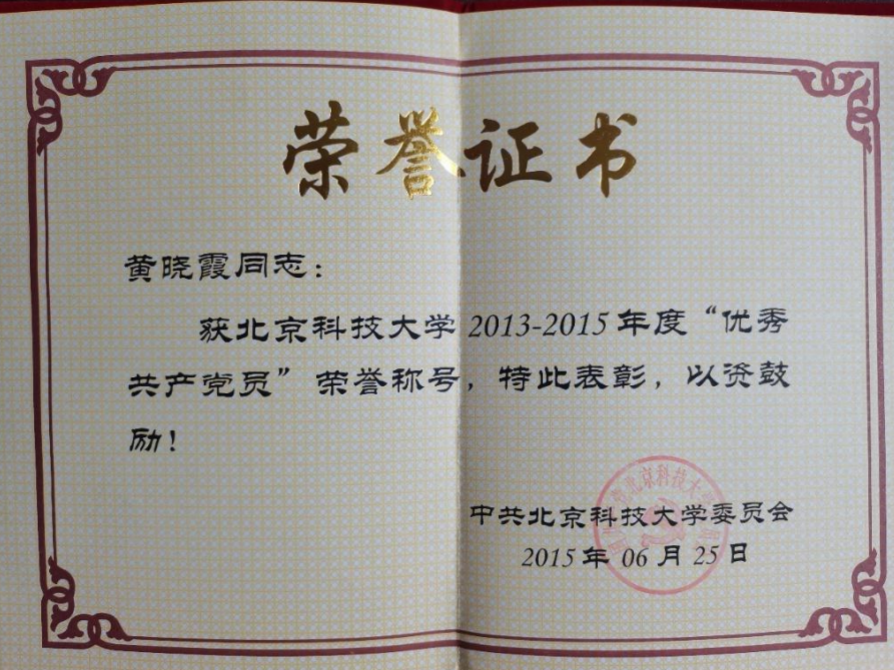 荣誉证书
黄晓霞同志：
获北京科技大学2013-2015年度“优秀
共产党员”荣誉称号，特此表彰，以资鼓
励！
中共北京科技大学委员会
2015年06月25日